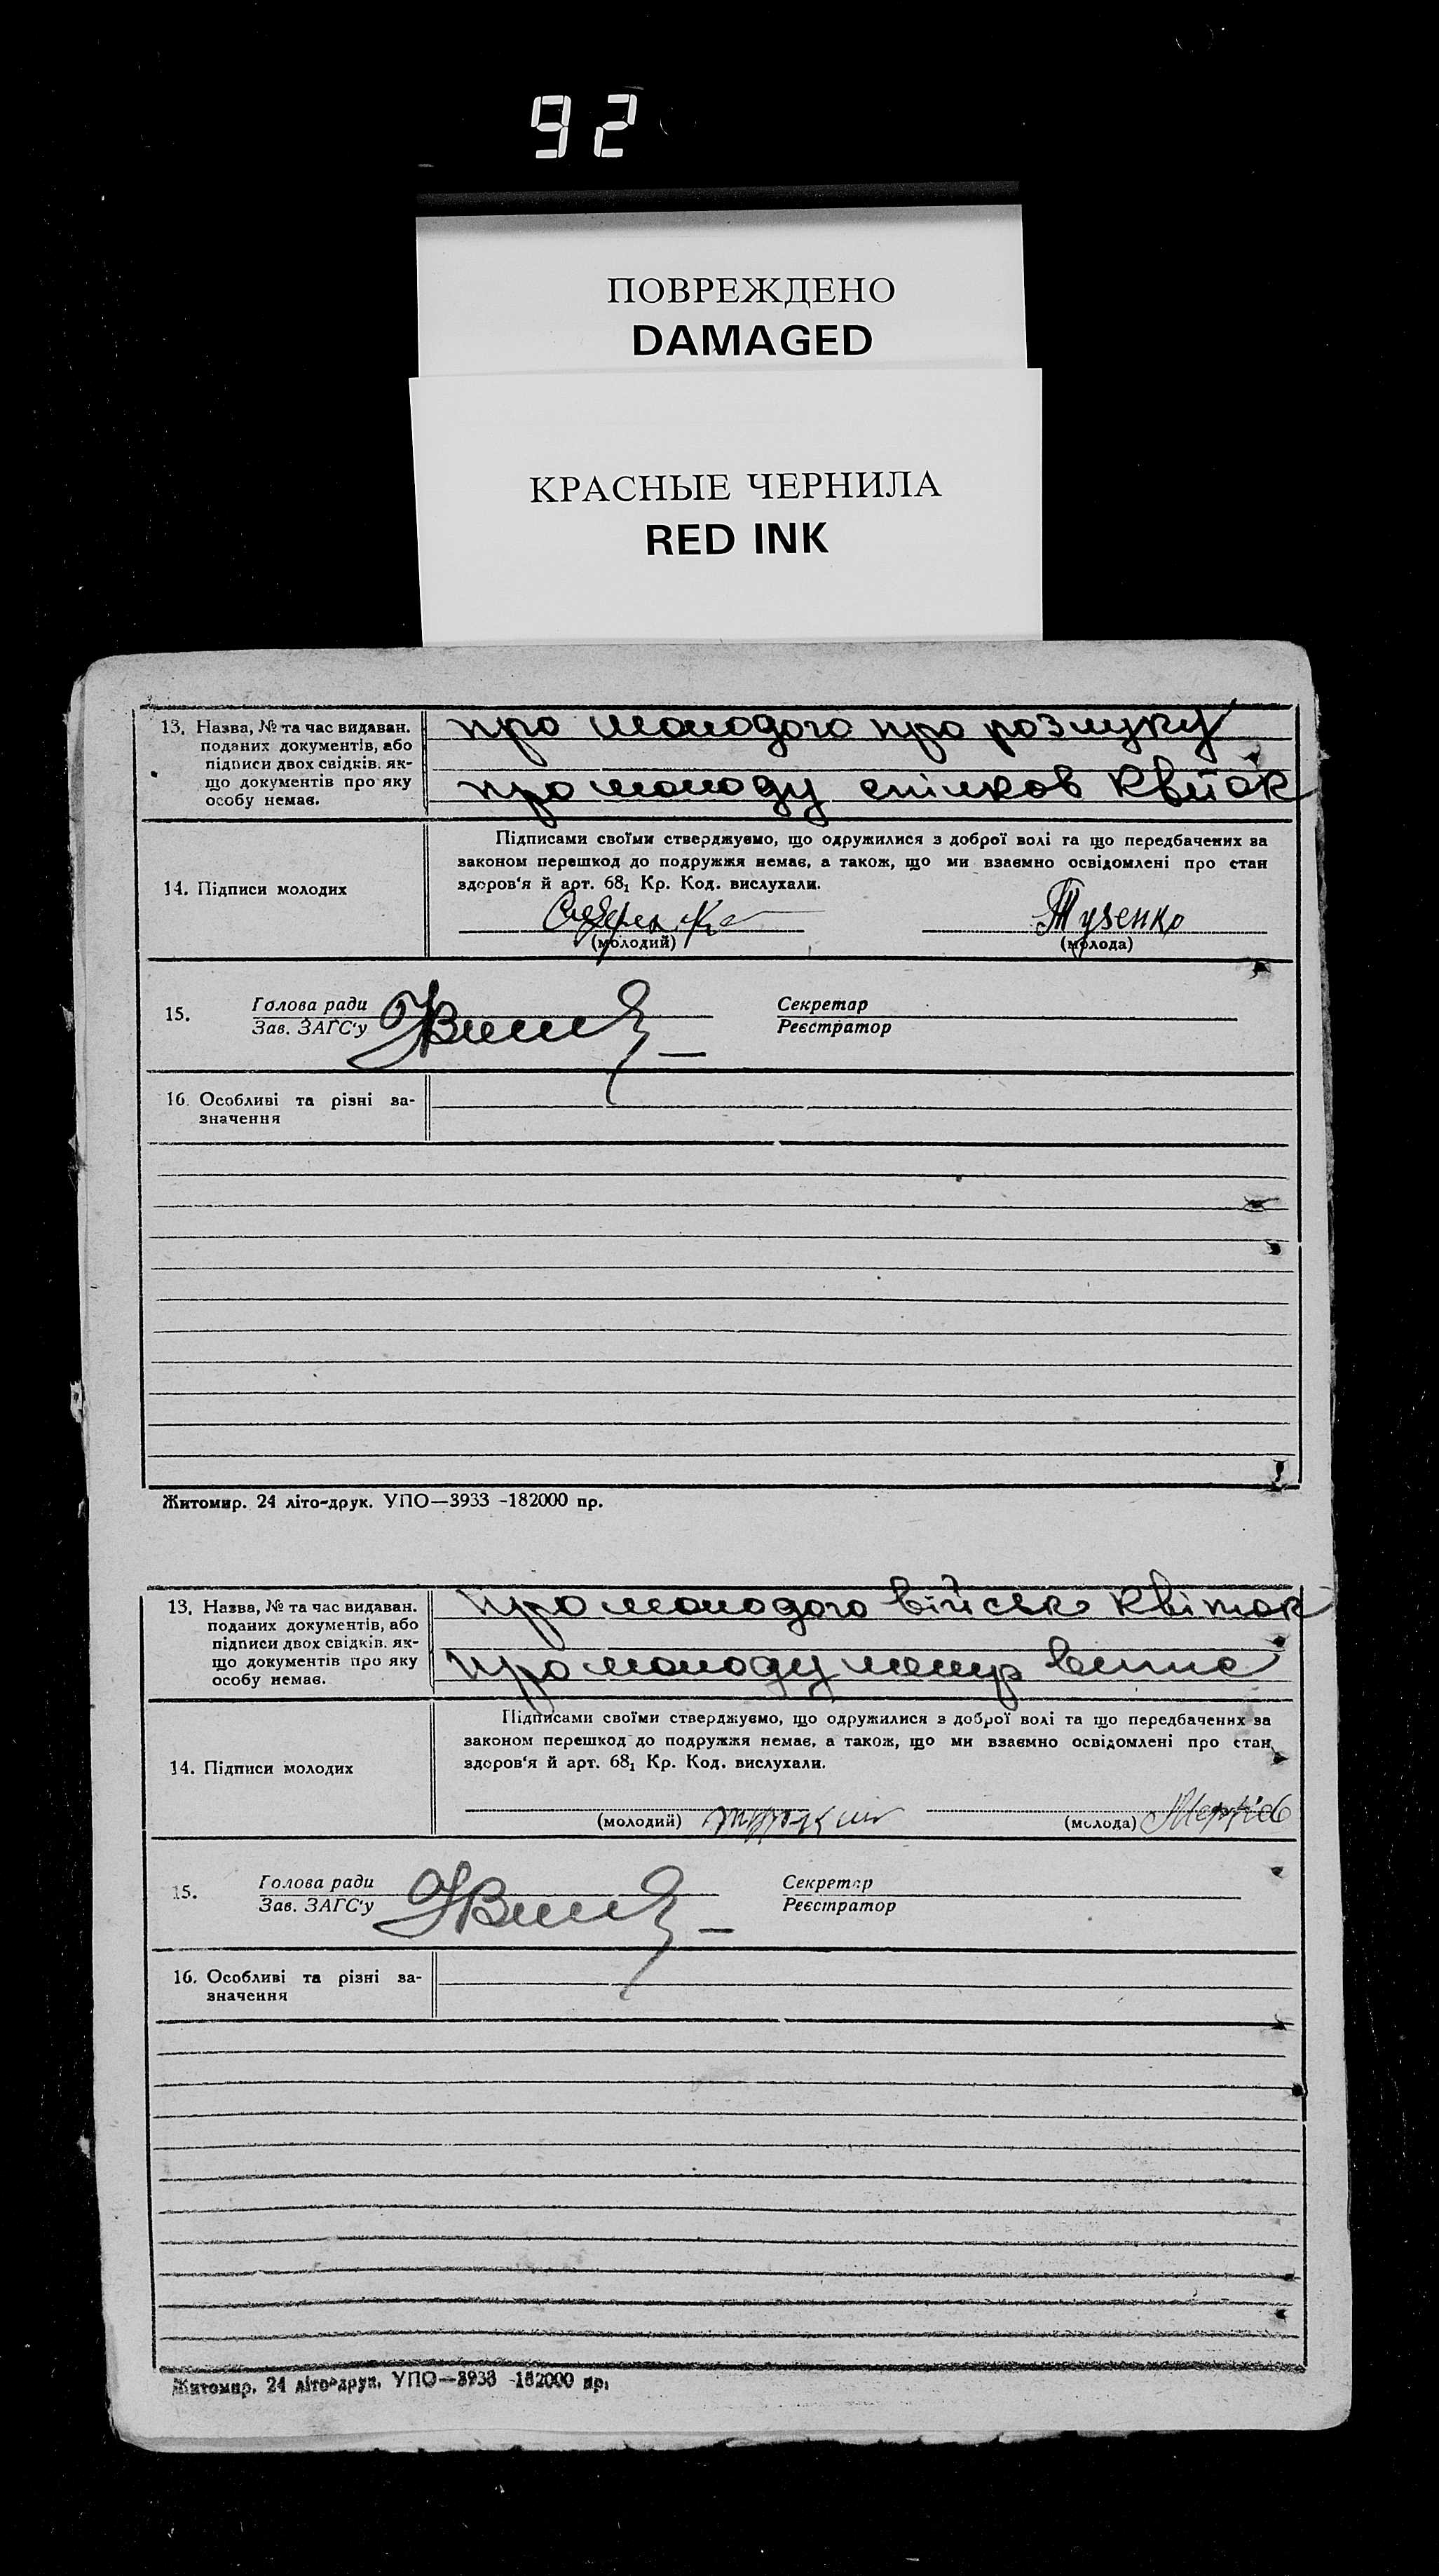 92
ПОВРЕЖДЕНО
DAMAGED
КРАСНЫЕ ЧЕРНИЛА
RED INK
13. Назва, № та час видаван.
поданих документів, або
підписи двох свідків. як-
що документів про яку
особу немає.
про молодого про розлуку
про молоду спілков квиток
14. Підписи молодих
Підписами своїми стверджуємо, що одружилися з доброї волі та що передбачених за
законом перешкод до подружжя немає, а також, що ми взаємно освідомлені про стан
здоров'я й арт. 68₁ Кр. Код. вислухали.
Тузенко
(молодий) (молода)
15. Голова ради
Зав. ЗАГС'у
Секретар
Реєстратор
16. Особливі та різні за-
значення
Житомир. 24 літо-друк. УПО—3933 -182000 пр.
13. Назва, № та час видаван.
поданих документів, або
підписи двох свідків. як-
що документів про яку
особу немає.
про молодого військ квіток
про молоду метр випис
14. Підписи молодих
Підписами своїми стверджуємо, що одружилися з доброї волі та що передбачених за
законом перешкод до подружжя немає, а також, що ми взаємно освідомлені про стан
здоров'я й арт. 68₁ Кр. Код. вислухали.
(молодий) (молода)
15. Голова ради
Зав. ЗАГС'у
Секретар
Реєстратор
16. Особливі та різні за-
значення
Житомир. 24 літо-друк. УПО—3933 -182000 пр.